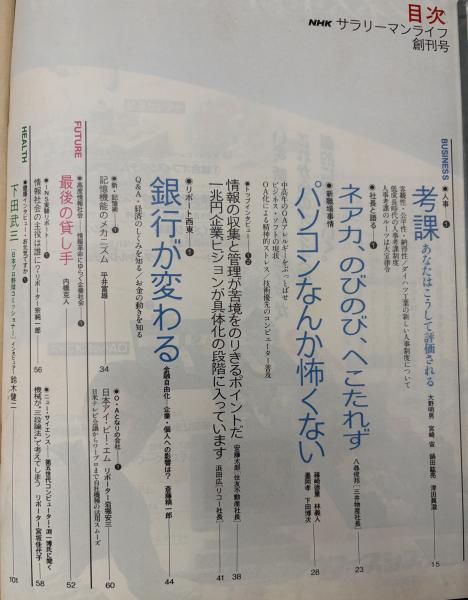 目次
NHK サラリーマンライフ
創刊号
BUSINESS
●人事 ❶
考課 あなたはこうして評価される
大野明男 宮崎 宣 鍋田紘亮 津田眞澂
客観性・公平性・納得性/ダイハツ工業の新しい人事制度について
低成長時代の人事考課制度
人事考課のルーツは大宝律令
15
●社長と語る ❶
ネアカ、のびのび、へこたれず
八尋俊邦(三井物産社長)
23
●新職場事情
パソコンなんか怖くない
篠崎徳量 林義人
墨岡孝 下田博次
中高年のOAアレルギーをぶっとばせ
ビジネス・ソフトの現状
OA化による精神的ストレス/技術優先のコンピューター普及
28
●トップインタビュー ❶❷
情報の収集と管理が苦境をのりきるポイントだ
安藤太郎(住友不動産社長)
38
一兆円企業ビジョンが具体化の段階に入っています
浜田広(リコー社長)
41
●リポート西東 ❶
銀行が変わる
金融自由化―企業・個人への影響は?
斎藤精一郎
44
Q&A・経済のしくみを知る/お金の動きを知る
●新・記憶術 ❶
記憶機能のメカニズム
平井富雄
34
●O・Aとなりの会社 ❶
日本アイ・ビー・エム
リポーター岩堀安三
日米テレビ会議からワープロまで自社機種の活用スムーズ
60
FUTURE
●高度情報社会 情報革命にゆらぐ企業社会 ❶
最後の貸し手
内橋克人
52
●INS実験リポート
情報社会の主役は誰に?
リポーター宗純一郎
56
●ニュー・サイエンス 第五世代コンピューター・渕一博氏に聞く
機械が“三段論法”で考えてしまう
リポーター宮坂佳代子
58
HEALTH
●健康インタビュー・お元気ですか ❶
下田武三
(日本プロ野球コミッショナー)
インタビュー 鈴木健二
101